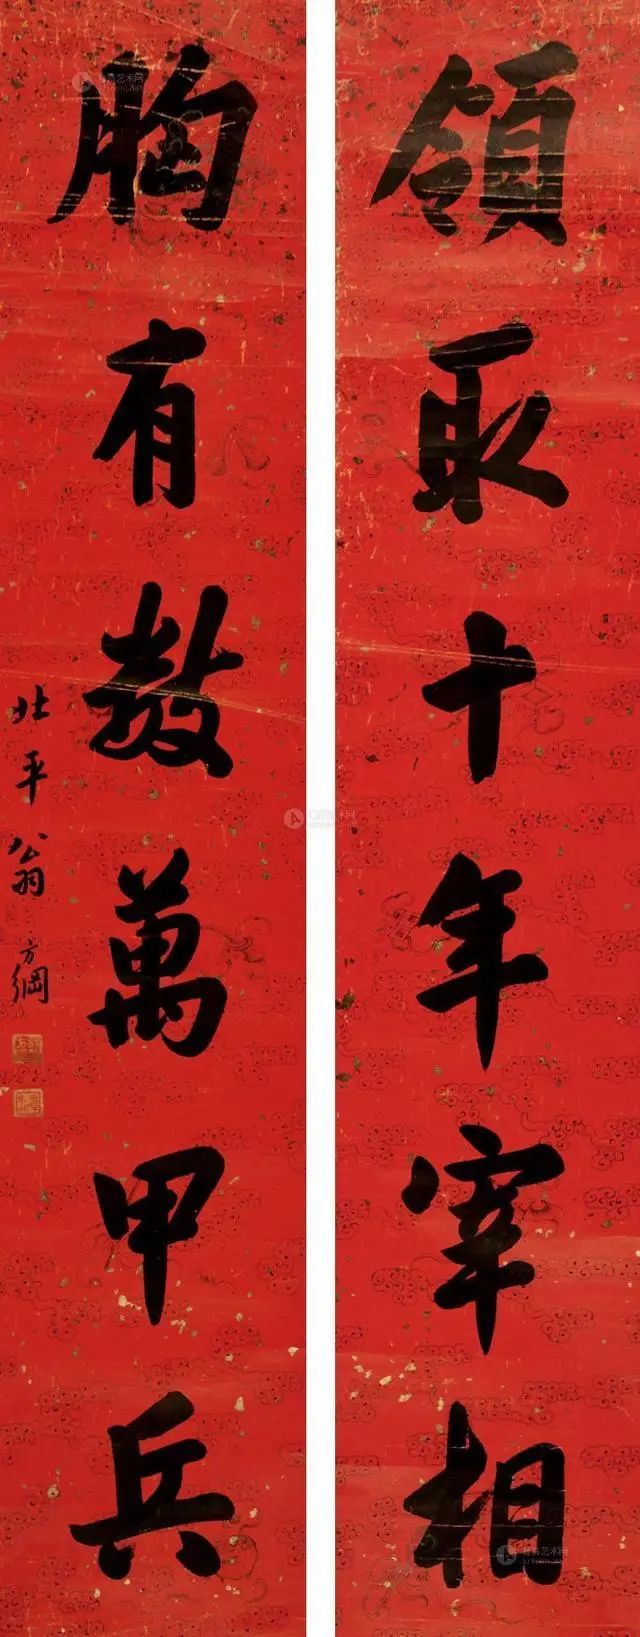 領取十年宰相
胸有數萬甲兵
北平翁方綱